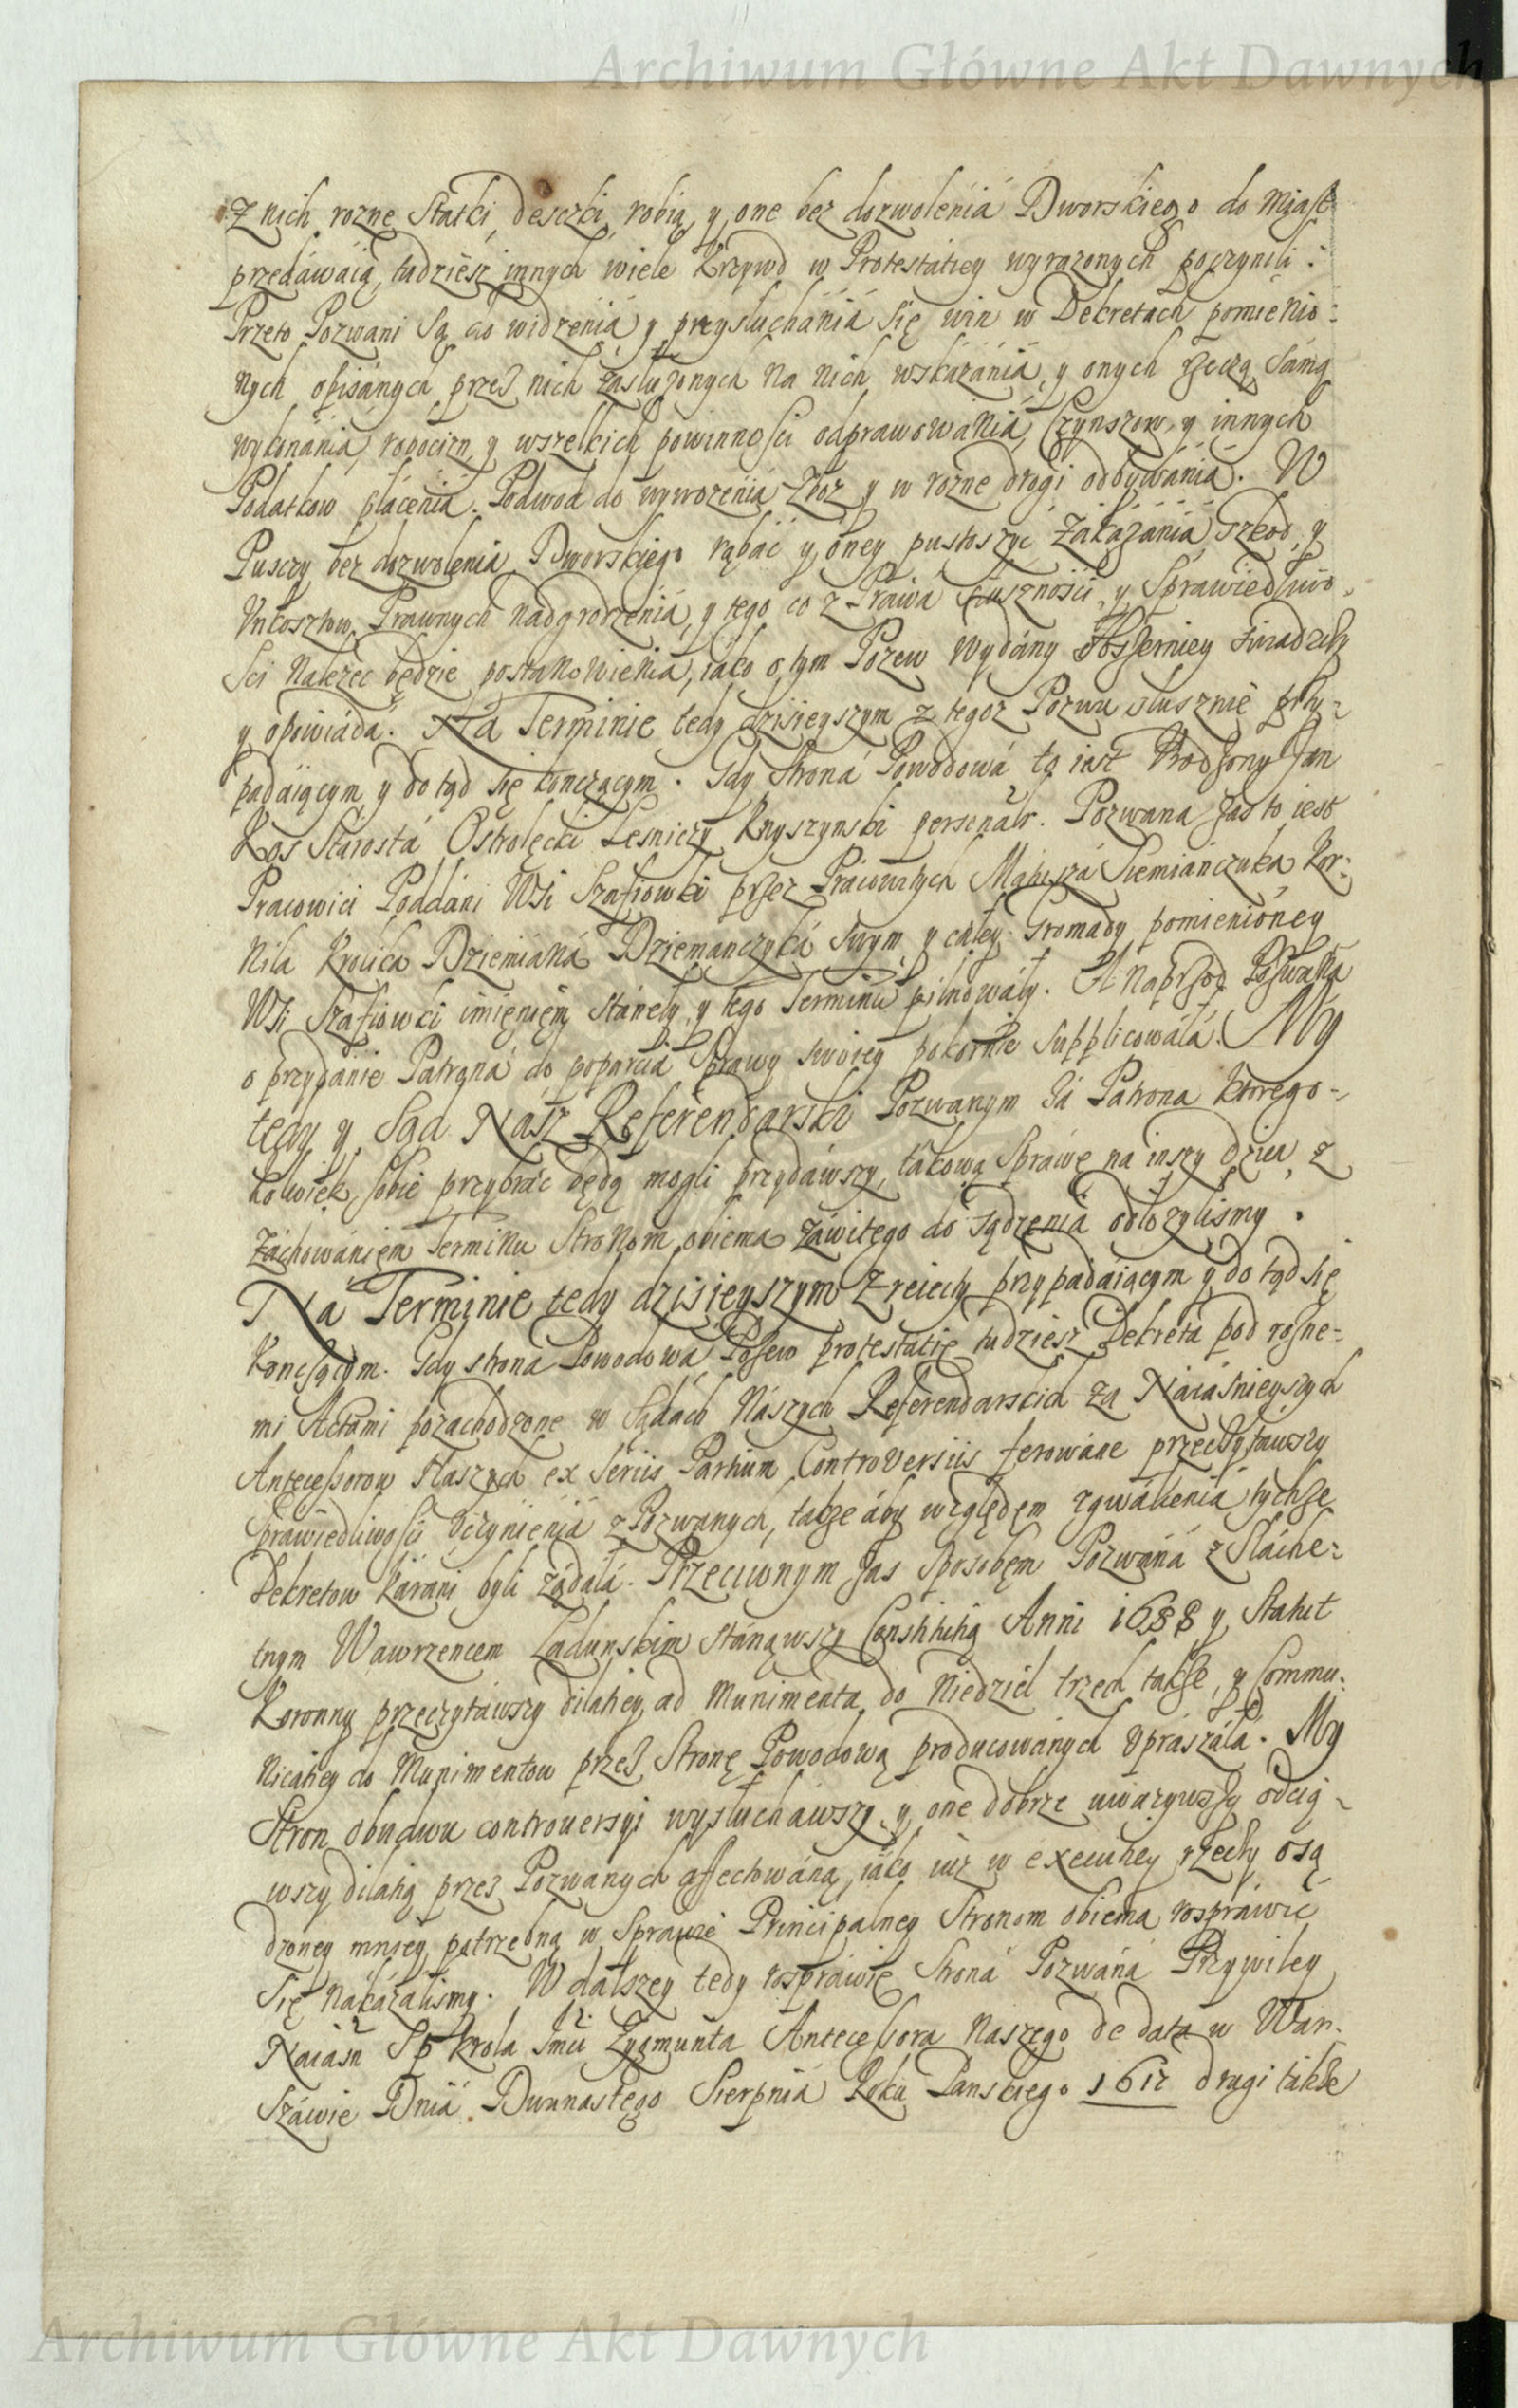 Archiwum Główne Akt Dawnych
z nich rozne Statki, desczki robią y one bez dozwolenia Dworskiego do Miast
przedáwáią, tudziesz innych wiele Krzywd w Protestatiey wyrazonych poczynili.
Przeto Pozwani Są do widzenia y przysłuchánia Się win w Dekretach pomienio-
nych opisánych przes nich zasłuzonych na nich wskazánia, y onych rzeczą Sámą
wykonánia, robocizn y wszelkich powinności odprawowania, Czynszow, y innych
Podatkow płácenia. Podwod do wywozenia zboz y w rozne drogi odbywánia. W
Puszczy bez dozwolenia Dworskiego rąbáć y oney pustoszyć zakazánia, Szkod, y
Vnkosztow Prawnych nadgrodzenia, y tego co z Práwa słuszności, y Spráwiedliwo-
ści nalezec będzie postanowienia, iáko o tym Pozew wydány obszerniey swiadczy
y opowiáda. Na Terminie tedy dzisieyszym z tegoz Pozwu słusznie przy-
padáiącym y do tąd się konczącym. Gdy Stroná Powodowá to iest Vrodzony Jan
Kos Stárostá Ostrolęcki Lesniczy Knyszynski personalr. Pozwana zas to iest
Pracowici Poddáni Wsi Szafiowki przez Prácowitych Máteuszá Siemiánczuka Kor-
nila Krolika Dziemiáná Dziemánczyká swym y cáłey Gromady pomienióney
Wsi Szafiowki imięnięm stáneły, y tego Terminu pilnowáły. A naprzod Pozwána
o przydánie Patroná do poparcia Sprawy swoiey pokornie Supplicowałá. My
tedy y Sąd Nász Referendarski Pozwanym zá Patrona ktorego-
kolwiek sobie przybráć będą mogli przydáwszy, tákową Spráwę na inszy dzien, z
záchowánięm Terminu Stronom obiema záwitego do sądzenia odłozyliśmy.
Na Terminie tedy dzisieyszym z reiecty przypadáiącym y do tąd się
kończącym. Gdy stroná Powodowá Pozew protestatię tudziesz Dekreta pod rozne-
mi Actámi pozachodzone w Sądách Nászych Referendarskich za Naiáśnieyszych
Antecessorow Naszych ex Seriis Partium Controversiis ferowáne przeczytawszy
Spráwiedliwości Vczynienia z Pozwanych, także áby względęm zgwałcenia tychże
Dekretow káráni byli ządałá. Przeciwnym zas Sposobęm Pozwáná z Sláche-
tnym Wawrzencem Ladunskim stánąwszy Constitutią Anni 1688 y Statut
Koronny przeczytáwszy dilatiey ad Munimenta do Niedziel trzech takze, y Commu-
nicátiey do Munimentow przes Stronę Powodową producowánych Vpraszałá. My
Stron obudwu controversyi wysłuchawszy y one dobrze uwazywszy odcią-
wszy dilatią przes Pozwanych affectowáną, iáko iuz w executiey rzeczy osą
dzoney mniey potrzebną w Sprawie Principalney Stronom obiema rospráwic
Się nákázálismy. W dálszey tedy rospráwie Stroná Pozwáná Przywiley
Naiásn Sp Krola Jmci Zygmunta Antecessora Naszego de data w War-
száwie Dniá Dwunastego Sierpniá Roku Panskiego 1612 drugi takze
Archiwum Główne Akt Dawnych